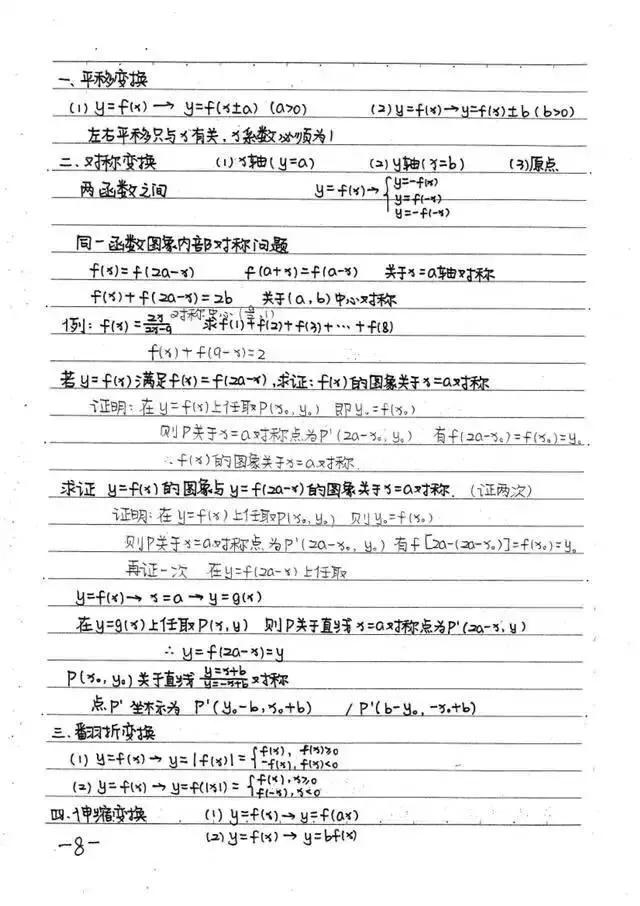 一、平移变换
(1) y=f(x) → y=f(x±a) (a>0) (2) y=f(x)→y=f(x)±b (b>0)
左右平移只与x有关，x系数必须为1
二、对称变换 (1) x轴(y=a) (2) y轴(x=b) (3)原点
两函数之间 y=f(x)→{y=-f(x)
y=f(-x)
y=-f(-x)
同一函数图象内部对称问题
f(x)=f(2a-x) f(a+x)=f(a-x) 关于x=a轴对称
f(x)+f(2a-x)=2b 关于(a,b)中心对称
对称中心(9/2,1)
例: f(x)=2x/(2x-9) 求f(1)+f(2)+f(3)+…+f(8)
f(x)+f(9-x)=2
若y=f(x)满足f(x)=f(2a-x),求证:f(x)的图象关于x=a对称
证明:在y=f(x)上任取P(x₀,y₀) 即y₀=f(x₀)
则P关于x=a对称点为P'(2a-x₀,y₀) 有f(2a-x₀)=f(x₀)=y₀
∴f(x)的图象关于x=a对称.
求证 y=f(x)的图象与y=f(2a-x)的图象关于x=a对称.(证两次)
证明:在y=f(x)上任取P(x₀,y₀) 则y₀=f(x₀)
则P关于x=a对称点为P'(2a-x₀,y₀) 有f[2a-(2a-x₀)]=f(x₀)=y₀
再证一次 在y=f(2a-x)上任取
y=f(x)→x=a→y=g(x)
在y=g(x)上任取P(x,y) 则P关于直线x=a对称点为P'(2a-x,y)
∴y=f(2a-x)=y
P(x₀,y₀)关于直线 y=x+b
y=-x+b 对称
点P'坐标为 P'(y₀-b,x₀+b) / P'(b-y₀,-x₀+b)
三、翻折变换
(1) y=f(x)→y=|f(x)|={f(x), f(x)≥0
-f(x), f(x)<0
(2) y=f(x)→y=f(|x|)={f(x), x≥0
f(-x), x<0
四、伸缩变换 (1) y=f(x)→y=f(ax)
(2) y=f(x)→y=bf(x)
-8-